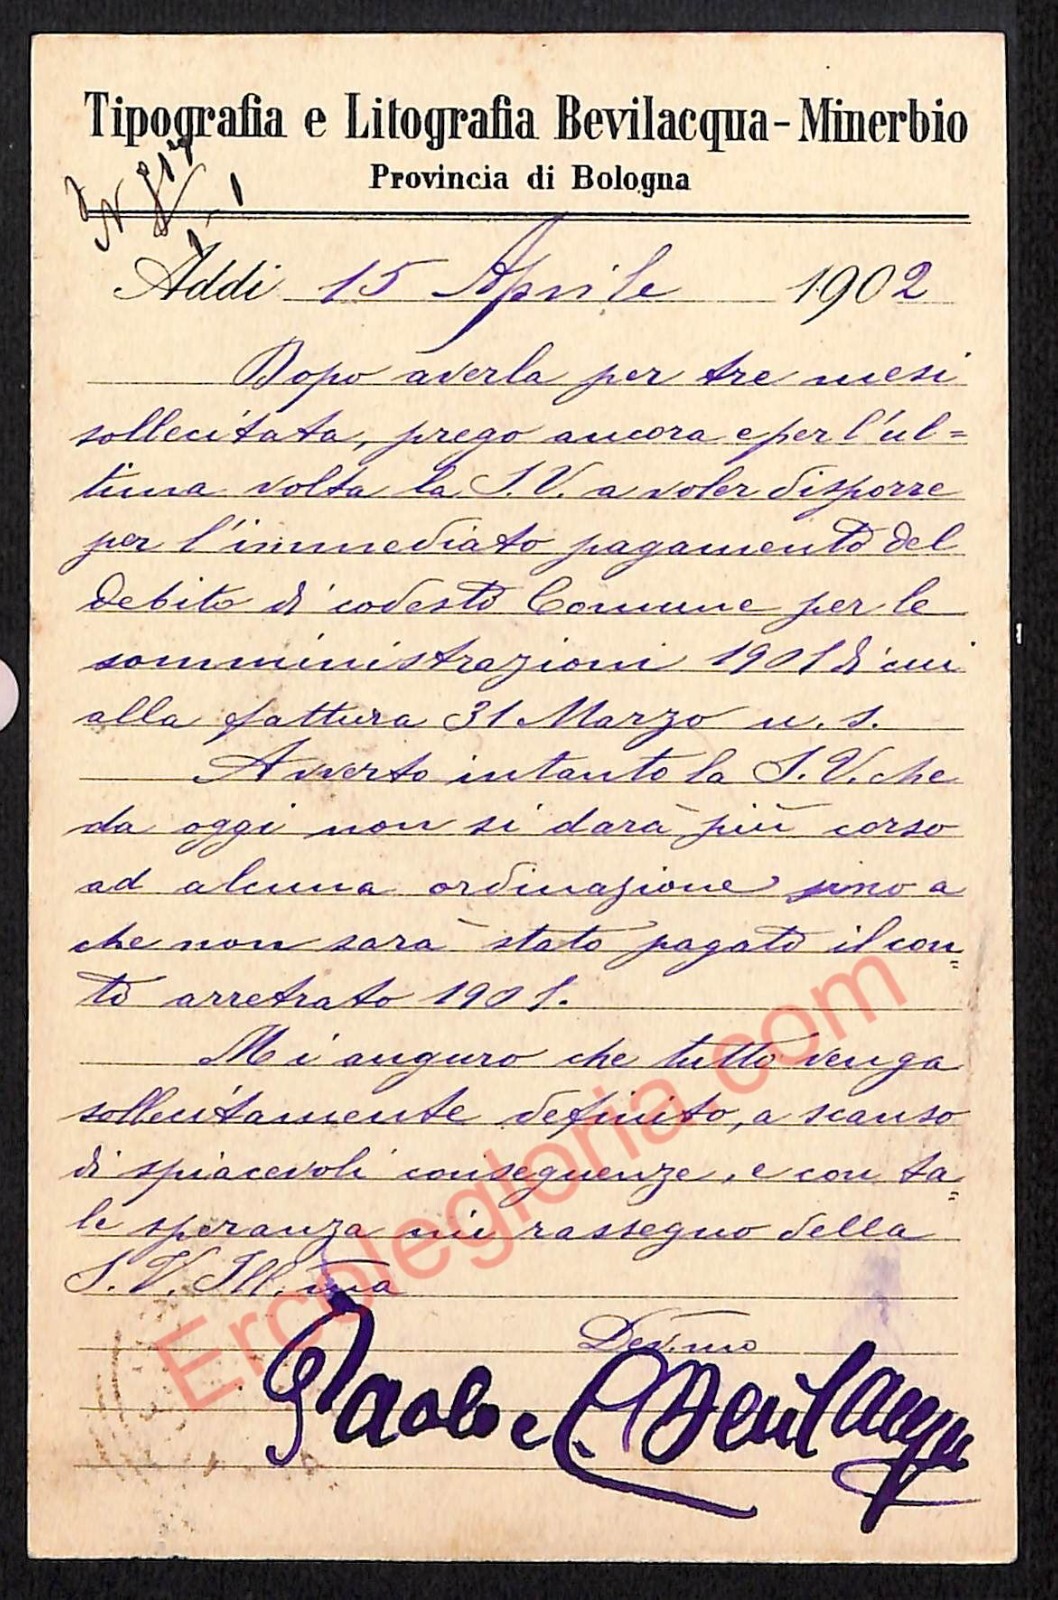 Tipografia e Litografia Bevilacqua-Minerbio
Provincia di Bologna
Addi 15 Aprile 1902
Dopo averla per tre mesi
sollecitata, prego ancora e per l'ul=
tima volta la S.V. a voler disporre
per l'immediato pagamento del
debito di codesto Comune per le
somministrazioni 1901 di cui
alla fattura 31 Marzo u. s.
Avverto intanto la S.V. che
da oggi non si darà più corso
ad alcuna ordinazione sino a
che non sarà stato pagato il con=
to arretrato 1901.
Mi auguro che tutto venga
sollecitamente definito, a scanso
di spiacevoli conseguenze, e con ta=
le speranza mi rassegno della
S.V. Ill.ma
Dev.mo
Paolo Bevilacqua
Ercolegloria.com